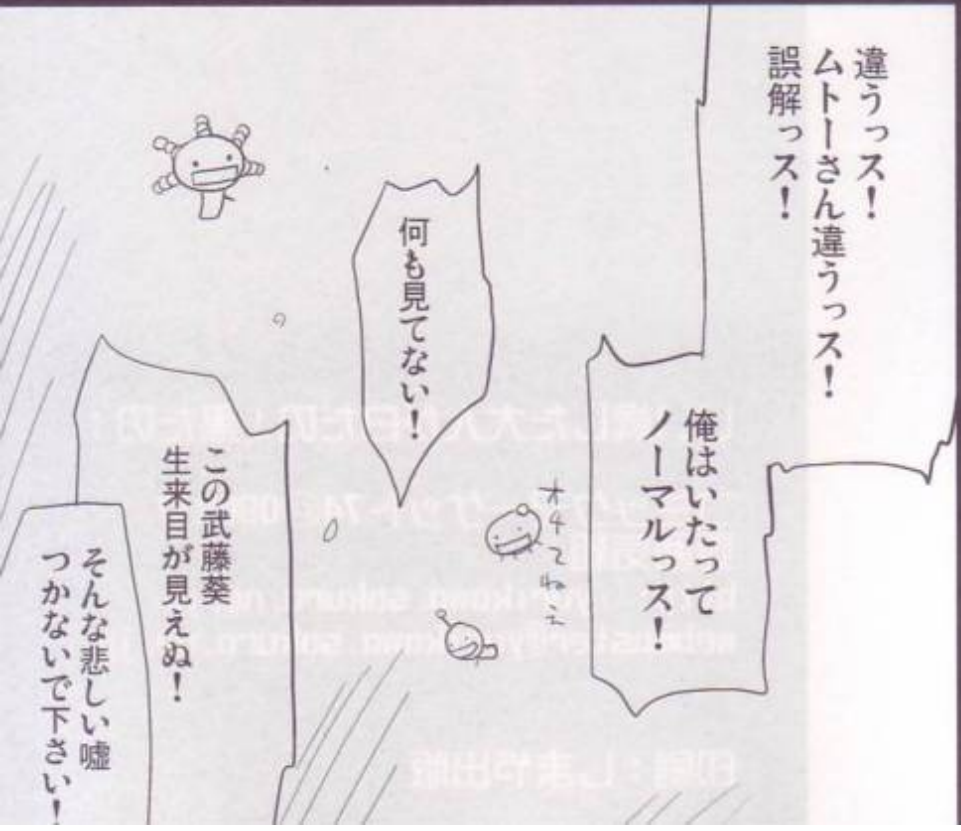 違うっス！
ムトーさん違うっス！
誤解っス！
俺はいたって
ノーマルっス！
何も見てない！
オチてねぇ
この武藤葵
生来目が見えぬ！
そんな悲しい嘘
つかないで下さい！